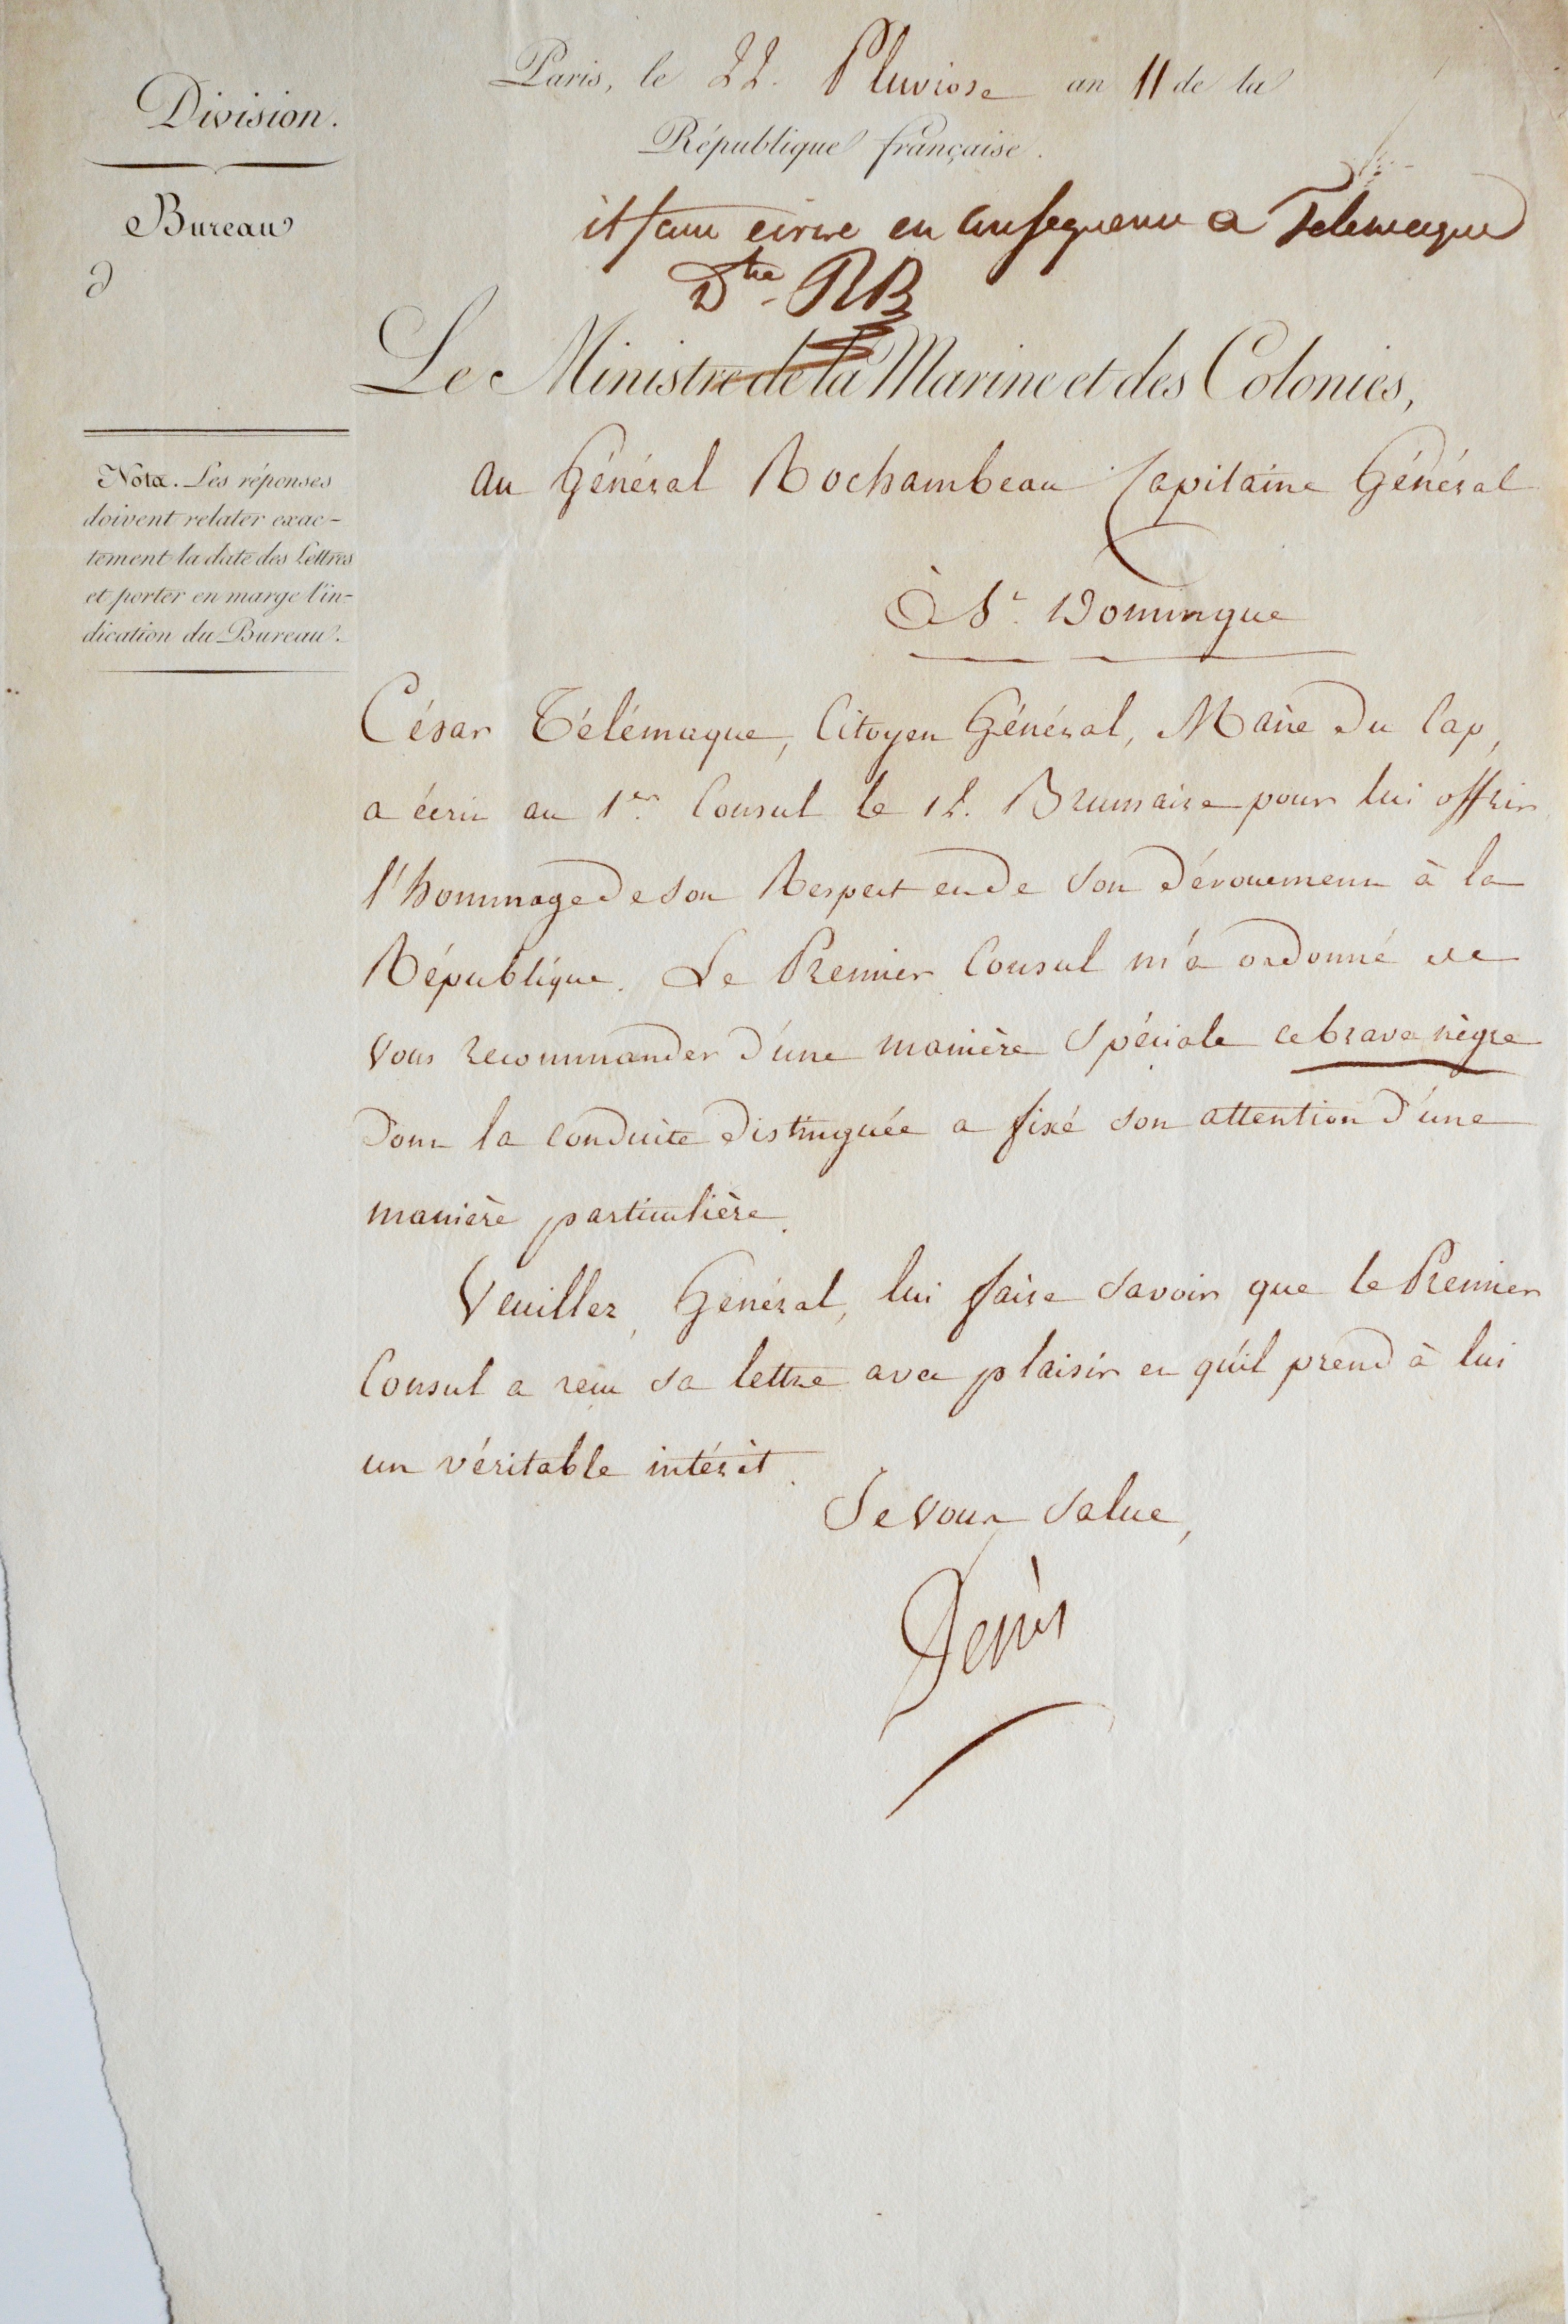 Division.
Bureau
d
Nota. Les réponses
doivent relater exac-
tement la date des Lettres
et porter en marge l'in-
dication du Bureau.
Paris, le 22. Pluviose an 11 de la
République française.
il faut ecrire en consequence a Telemaque
RB
Le Ministre de la Marine et des Colonies,
Au Général Rochambeau Capitaine Général
à St. Domingue
César Télémaque, Citoyen Général, Maire du Cap,
a écrit au 1er. Consul le 12. Brumaire pour lui offrir
l'hommage de son Respect et de son dévouement à la
République. Le Premier Consul m'a ordonné de
vous recommander d'une manière spéciale ce brave nègre
dont la conduite distinguée a fixé son attention d'une
manière particulière.
Veuillez, Général, lui faire savoir que le Premier
Consul a reçu sa lettre avec plaisir et qu'il prend à lui
un véritable intérêt.
Je vous salue,
Decrès